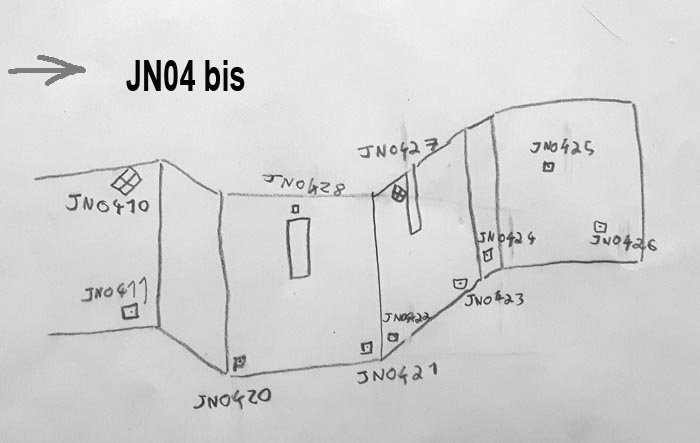 JN04 bis
JN0427
JN0425
JN0428
JN0410
JN0424
JN0426
JN0411
JN0423
JN0422
JN0421
JN0420